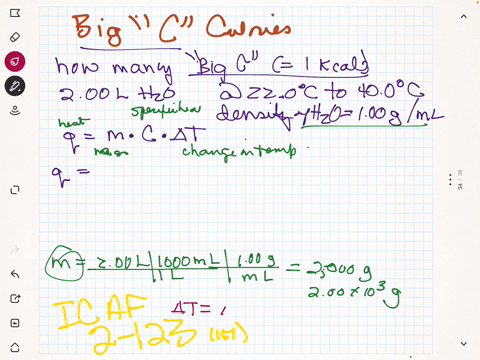 Big "C" Calories
how many "Big C" (= 1 kcal)
2.00 L H2O @ 22.0°C to 40.0°C
specific heat density of H2O = 1.00 g/mL
heat
q = m • C • ΔT
mass change in temp
q =
m = 2.00 L | 1000 mL | 1.00 g = 2,000 g
1 L | mL 2.00 x 10³ g
ICAF ΔT =
2-123
34 / 38